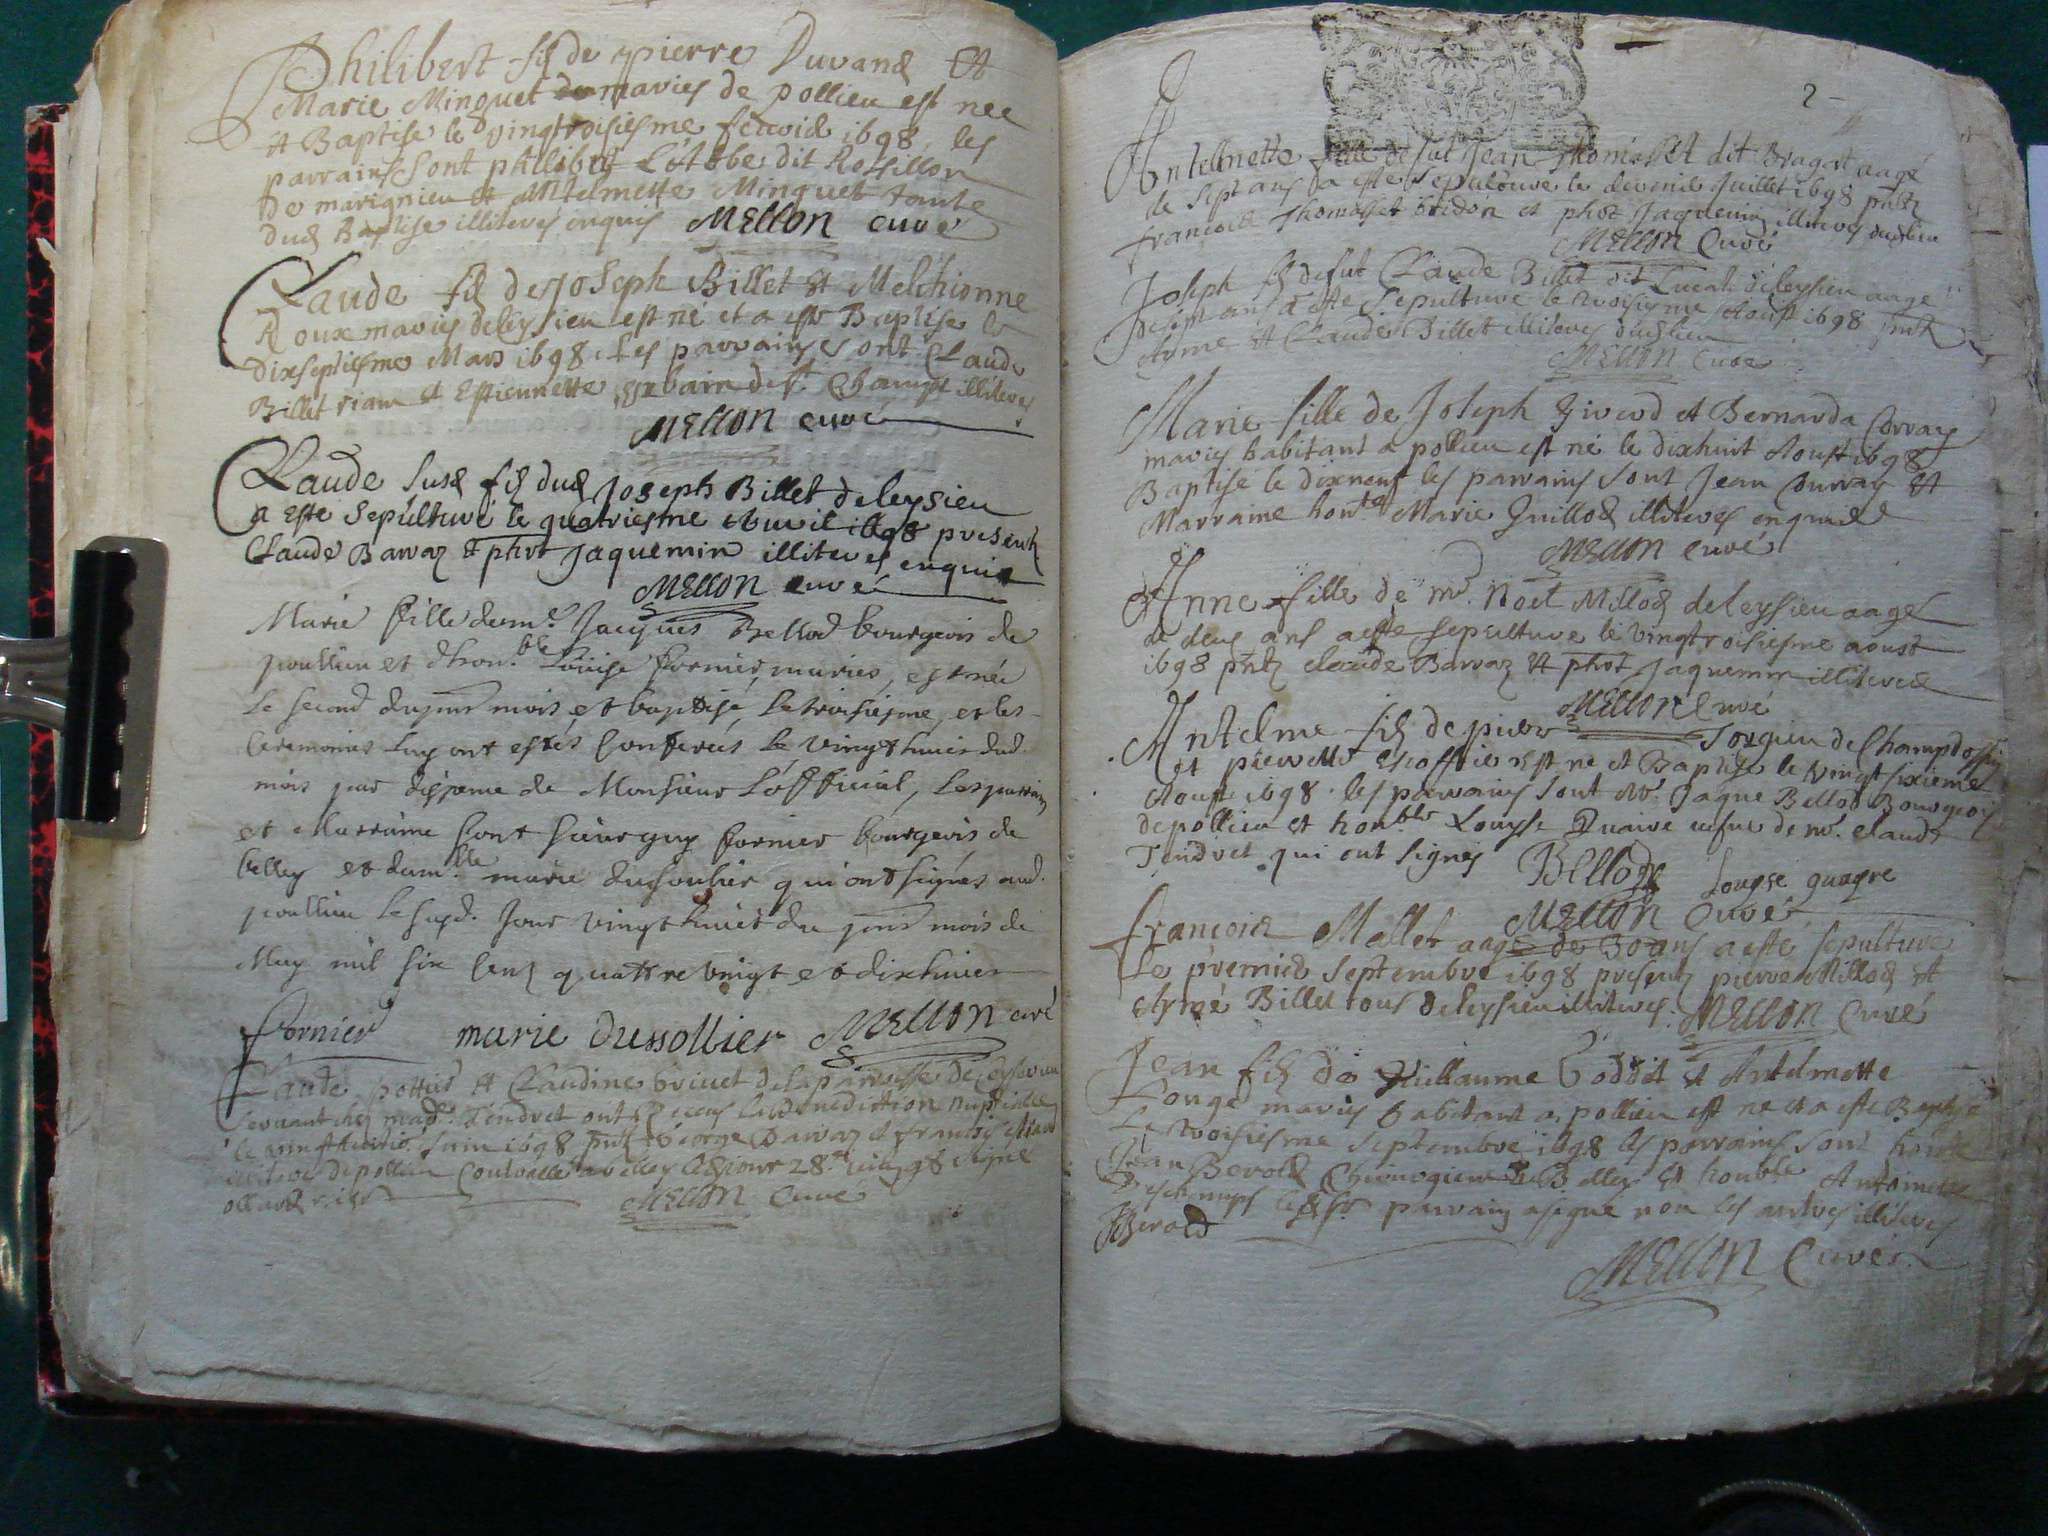 Philibert fil de pierre Duvand Et
Marie Minguet maries de pollieu est nee
et Baptise le vingtroisiesme fevrid 1698 les
parrains sont philibert dit Rossillon
De marignieu et Antelmette Minguet tante
dud Baptise illiteres enquis MEllon curé
Claude fil de Joseph Billet et Melchionne
Roux maries de leysieu est né et a este Baptise le
dixseptiesme Mars 1698 les parrains sont Claude
Billet et Estiennette de st Champt illiteres
MEllon curé
Claude susd fil dud Joseph Billet de leysieu
a este sepulturé le quatriesme Avvil 1698 presents
Claude Barraz et phot Jaquemin illiteres enquis
MEllon curé
Marie fille de mr. Jacques Bellod bourgeois de
poullieu et d'hon.ble Louise fornier, maries, est née
le second du pnt mois et baptisé le troisiesme, et les
ceremonies luy ont estés Conferées le vingthuict dud.
mois par dispense de Monsieur L'official, Les parrain
et Marraine sont sieur guy fornier bourgeois de
belley et dam.lle marie dusoulier qui ont signés aud.
poullieu le susd. Jour vingthuict du pnt mois de
May mil six Cent quattre vingt et dixhuict
fornier marie dussollier MEllon curé
Claude pottier et Claudine brivet de la parroisse de Ceyserieu
servant chez mad. Tendret ont receu la Benediction nuptialle
le vingthuictie Juin 1698 George Barraz et francois
illiteres de pollieu Controllé a belley 98 signé
MEllon Curé
2
Antelmette fille de fut Jean Thomasset dit Bragat aage
de sept ans a este sepulturee le dernid Juillet 1698 pnts
francois Thomasset et phot Jaquemin illiteres dud lieu
MEllon Curé
Joseph fil de fut Claude Billet dit de leysieu aage
de sept ans a este sepulturé le troisiesme Aoust 1698 pnts
Ayme et Claude Billet illiteres dud lieu
MEllon Curé
Marie fille de Joseph Giverd et Bernarda Corraz
maries habitant a pollieu est né le dixhuit Aoust 1698
Baptise le dixneuf les parrains sont Jean Courraz et
Marraine honte Marie Juillod illiteres enquis
MEllon Curé
Anne fille de mr. Noel Millod de leysieu aage
de deux ans a este sepulture le vingtroisiesme aoust
1698 pnts claude Barraz et phot Jaquemin illiteres
MEllon Curé
Antelme fil de pierre de Champdossin
et pierrette Escoffier Est né et Baptise le vingt sixieme
Aoust 1698 les parrains sont mr. Jaque Bellod Bourgeois
de pollieu et hon.ble Louyse Quaire vefue de mr. claude
Tendret qui ont signés Bellod Louyse quayre
MEllon Curé
francois Mallet aage de 30 ans a este sepulture
le premier septembre 1698 presents pierre Millod et
Aymé Billet tous de leysieu illiteres. MEllon Curé
Jean fil de Guillaume Goddet et Antelmette
Longe maries habitant a pollieu est né et a este Baptise
Le troisiesme septembre 1698 les parrains sont honte
Jean Berold Chirurgien de Belley et honble Antoinette
Deschamps led sr parrain a signé non les autres illiteres
Berold
MEllon Curé